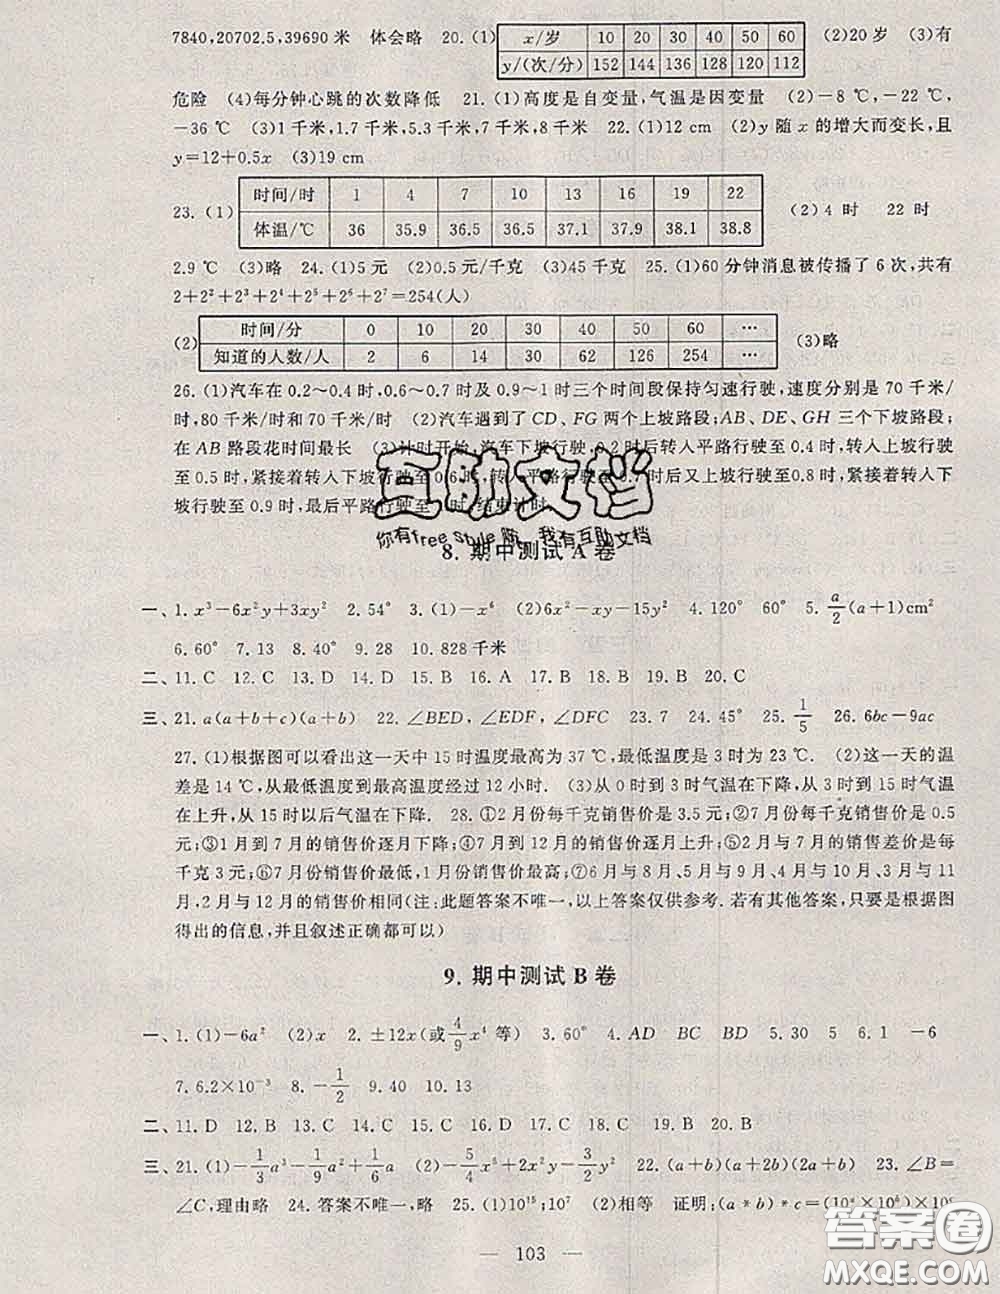 7840,20702.5,39690 米　体会略　20. (1)
x/岁 10 20 30 40 50 60
y/(次/分) 152 144 136 128 120 112
(2)20 岁　(3)有
危险　(4)每分钟心跳的次数降低　21. (1)高度是自变量,气温是因变量　(2)－8 ℃,－22 ℃,
－36 ℃　(3)1 千米,1.7 千米,5.3 千米,7 千米,8 千米　22. (1)12 cm　(2)y 随 x 的增大而变长,且
y=12+0.5x　(3)19 cm
23. (1)
时间/时 1 4 7 10 13 16 19 22
体温/℃ 36 35.9 36.5 36.5 37.1 37.9 38.1 38.8
(2) 4 时　22 时
2.9 ℃　(3)略　24. (1)5 元　(2)0.5 元/千克　(3)45 千克　25. (1)60 分钟消息被传播了 6 次,共有
2+2²+2³+2⁴+2⁵+2⁶+2⁷=254(人)
(2)
时间/分 0 10 20 30 40 50 60 …
知道的人数/人 2 6 14 30 62 126 254 …
(3)略
26. (1)汽车在 0.2～0.4 时,0.6～0.7 时及 0.9～1 时三个时间段保持匀速行驶,速度分别是 70 千米/
时,80 千米/时和 70 千米/时　(2)汽车遇到了 CD、FG 两个上坡路段;AB、DE、GH 三个下坡路段;
在 AB 路段花时间最长　(3)计时开始,汽车下坡行驶,0.2 时后转入平路行驶至 0.4 时,转入上坡行驶
至 0.5 时,紧接着转入下坡行驶至 0.6 时,转入平路行驶至 0.7 时后又上坡行驶至0.8 时,紧接着转入下
坡行驶至 0.9 时,最后平路行驶至 1 时,结束计时.
互助文档
你有free style 吗，我有互助文档
8. 期中测试 A 卷
一、1. x³－6x²y＋3xy²　2. 54°　3. (1)－x⁶　(2)6x²－xy－15y²　4. 120°　60°　5. a/2(a＋1)cm²
6. 60°　7. 13　8. 40°　9. 28　10. 828 千米
二、11. C　12. C　13. D　14. D　15. B　16. A　17. B　18. B　19. B　20. C
三、21. a(a＋b＋c)(a＋b)　22. ∠BED, ∠EDF, ∠DFC　23. 7　24. 45°　25. 1/5　26. 6bc－9ac
27. (1)根据图可以看出这一天中 15 时温度最高为 37 ℃,最低温度是 3 时为 23 ℃.　(2)这一天的温
差是 14 ℃,从最低温度到最高温度经过 12 小时.　(3)从 0 时到 3 时气温在下降,从 3 时到 15 时气温
在上升,从 15 时以后气温在下降.　28. ①2 月份每千克销售价是 3.5 元;②7 月份每千克销售价是 0.5
元;③1 月到 7 月的销售价逐月下降;④7 月到 12 月的销售价逐月上升;⑤2 月与 7 月的销售差价是每
千克 3 元;⑥7 月份销售价最低,1 月份销售价最高;⑦6 月与 8 月、5 月与 9 月、4 月与 10 月、3 月与 11
月,2 月与 12 月的销售价相同(注:此题答案不唯一,以上答案仅供参考. 若有其他答案,只要是根据图
得出的信息,并且叙述正确都可以)
9. 期中测试 B 卷
一、1. (1)－6a²　(2)x　2. ±12x(或4/9x⁴ 等)　3. 60°　4. AD　BC　BD　5. 30　5　6. 1　－6
7. 6.2×10⁻³　8. －1/2　9. 40　10. 13
二、11. D　12. B　13. C　14. D　15. A　16. D　17. C　18. B　19. B　20. B
三、21. (1)－1/3a³－1/9a²＋1/6a　(2)－5/4x⁵＋2x²y－3/2y²　22. (a＋b)(a＋2b)(2a＋b)　23. ∠B＝
∠C,理由略　24. 答案不唯一,略　25. (1)10¹⁵;10⁷　(2)相等　证明:(a*b)*c＝(10ᵃ×10ᵇ)×10ᶜ
— 103 —
答案圈
MXQE.COM